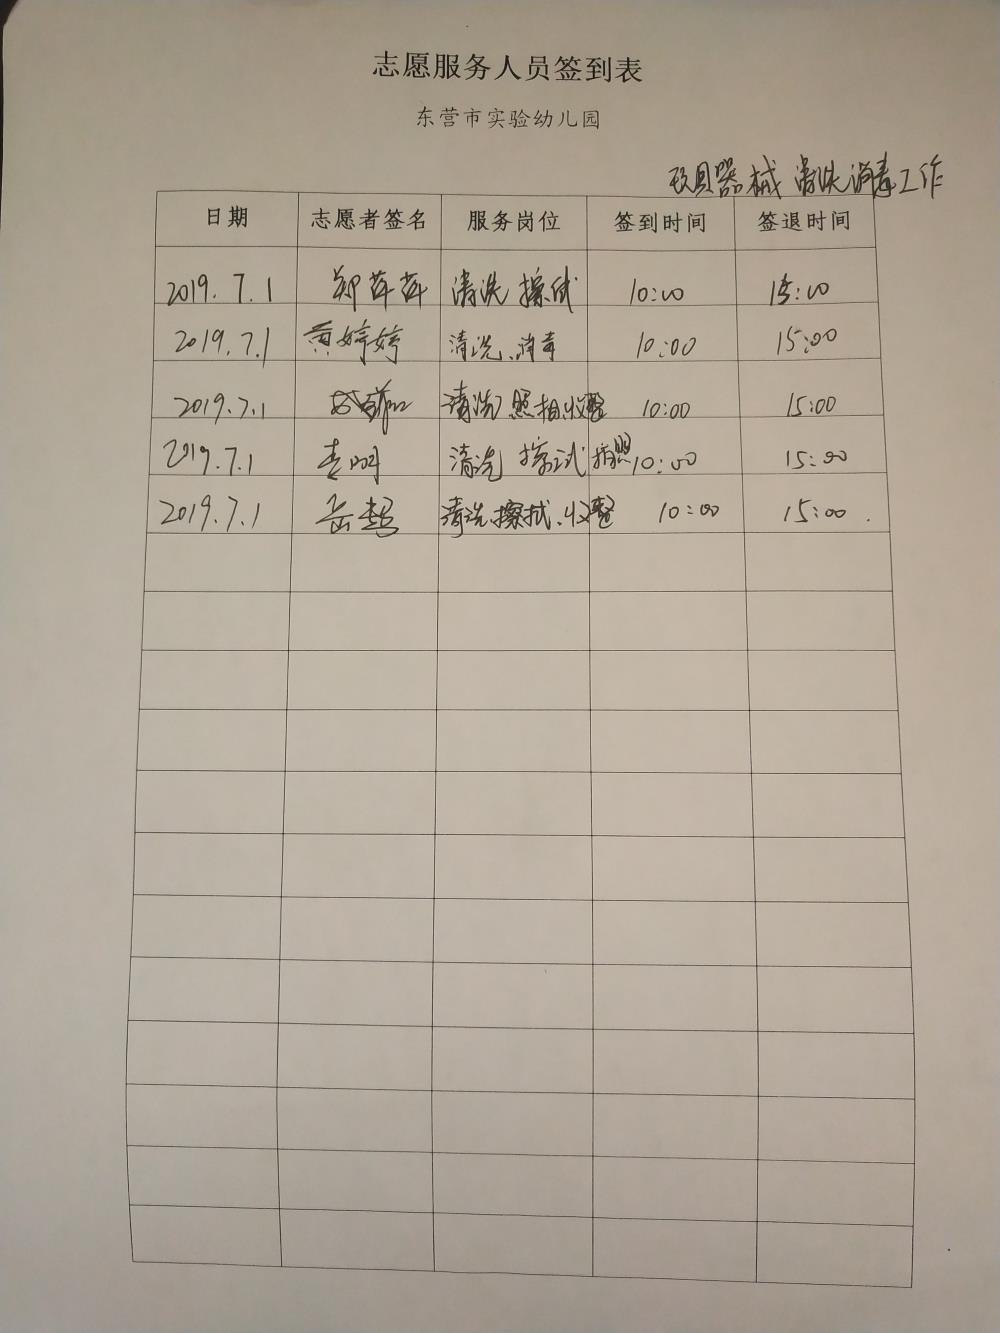 志愿服务人员签到表
东营市实验幼儿园
玩具器械 清洗消毒工作
日期 志愿者签名 服务岗位 签到时间 签退时间
2019.7.1 郑苹苹 清洗 擦拭 10:00 15:00
2019.7.1 黄婷婷 清洗、消毒 10:00 15:00
2019.7.1 清洗 照相收整 10:00 15:00
2019.7.1 清洗 擦拭 拍照 10:00 15:00
2019.7.1 岳超 清洗、擦拭、收整 10:00 15:00.